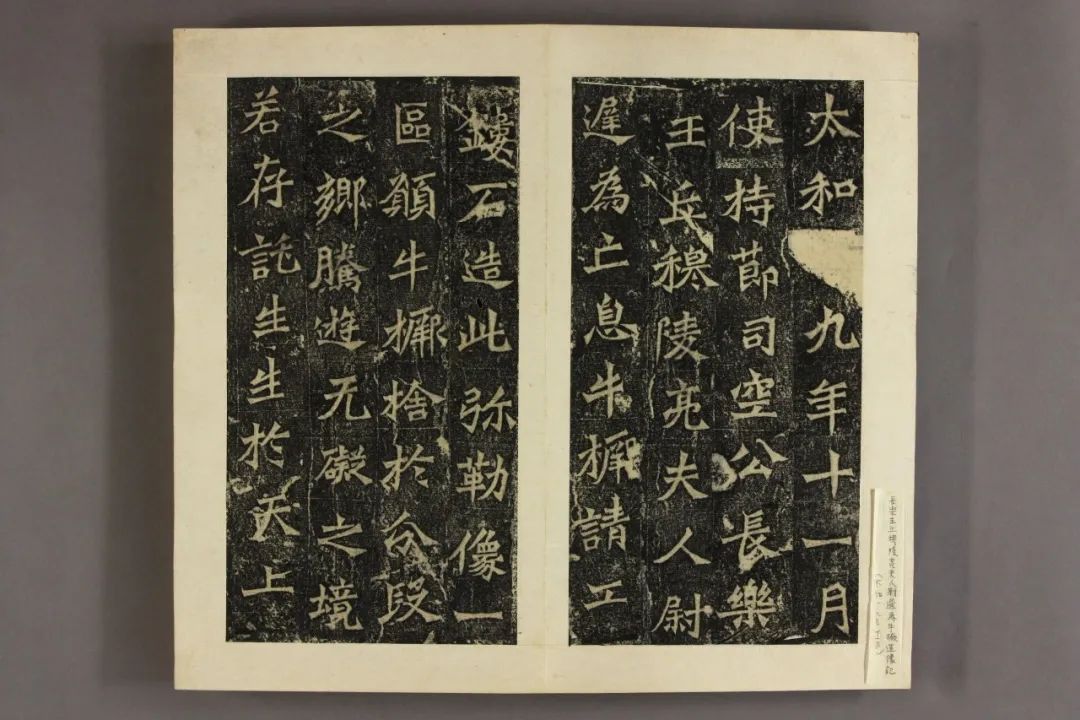 太和九年十一月
使持節司空公長樂
王丘穆陵亮夫人尉
遲為亡息牛橛請工
鏤石造此弥勒像一
區願牛橛捨於分段
之鄉騰遊无礙之境
若存託生生於天上
長樂王丘穆陵亮夫人尉遲為牛橛造像記